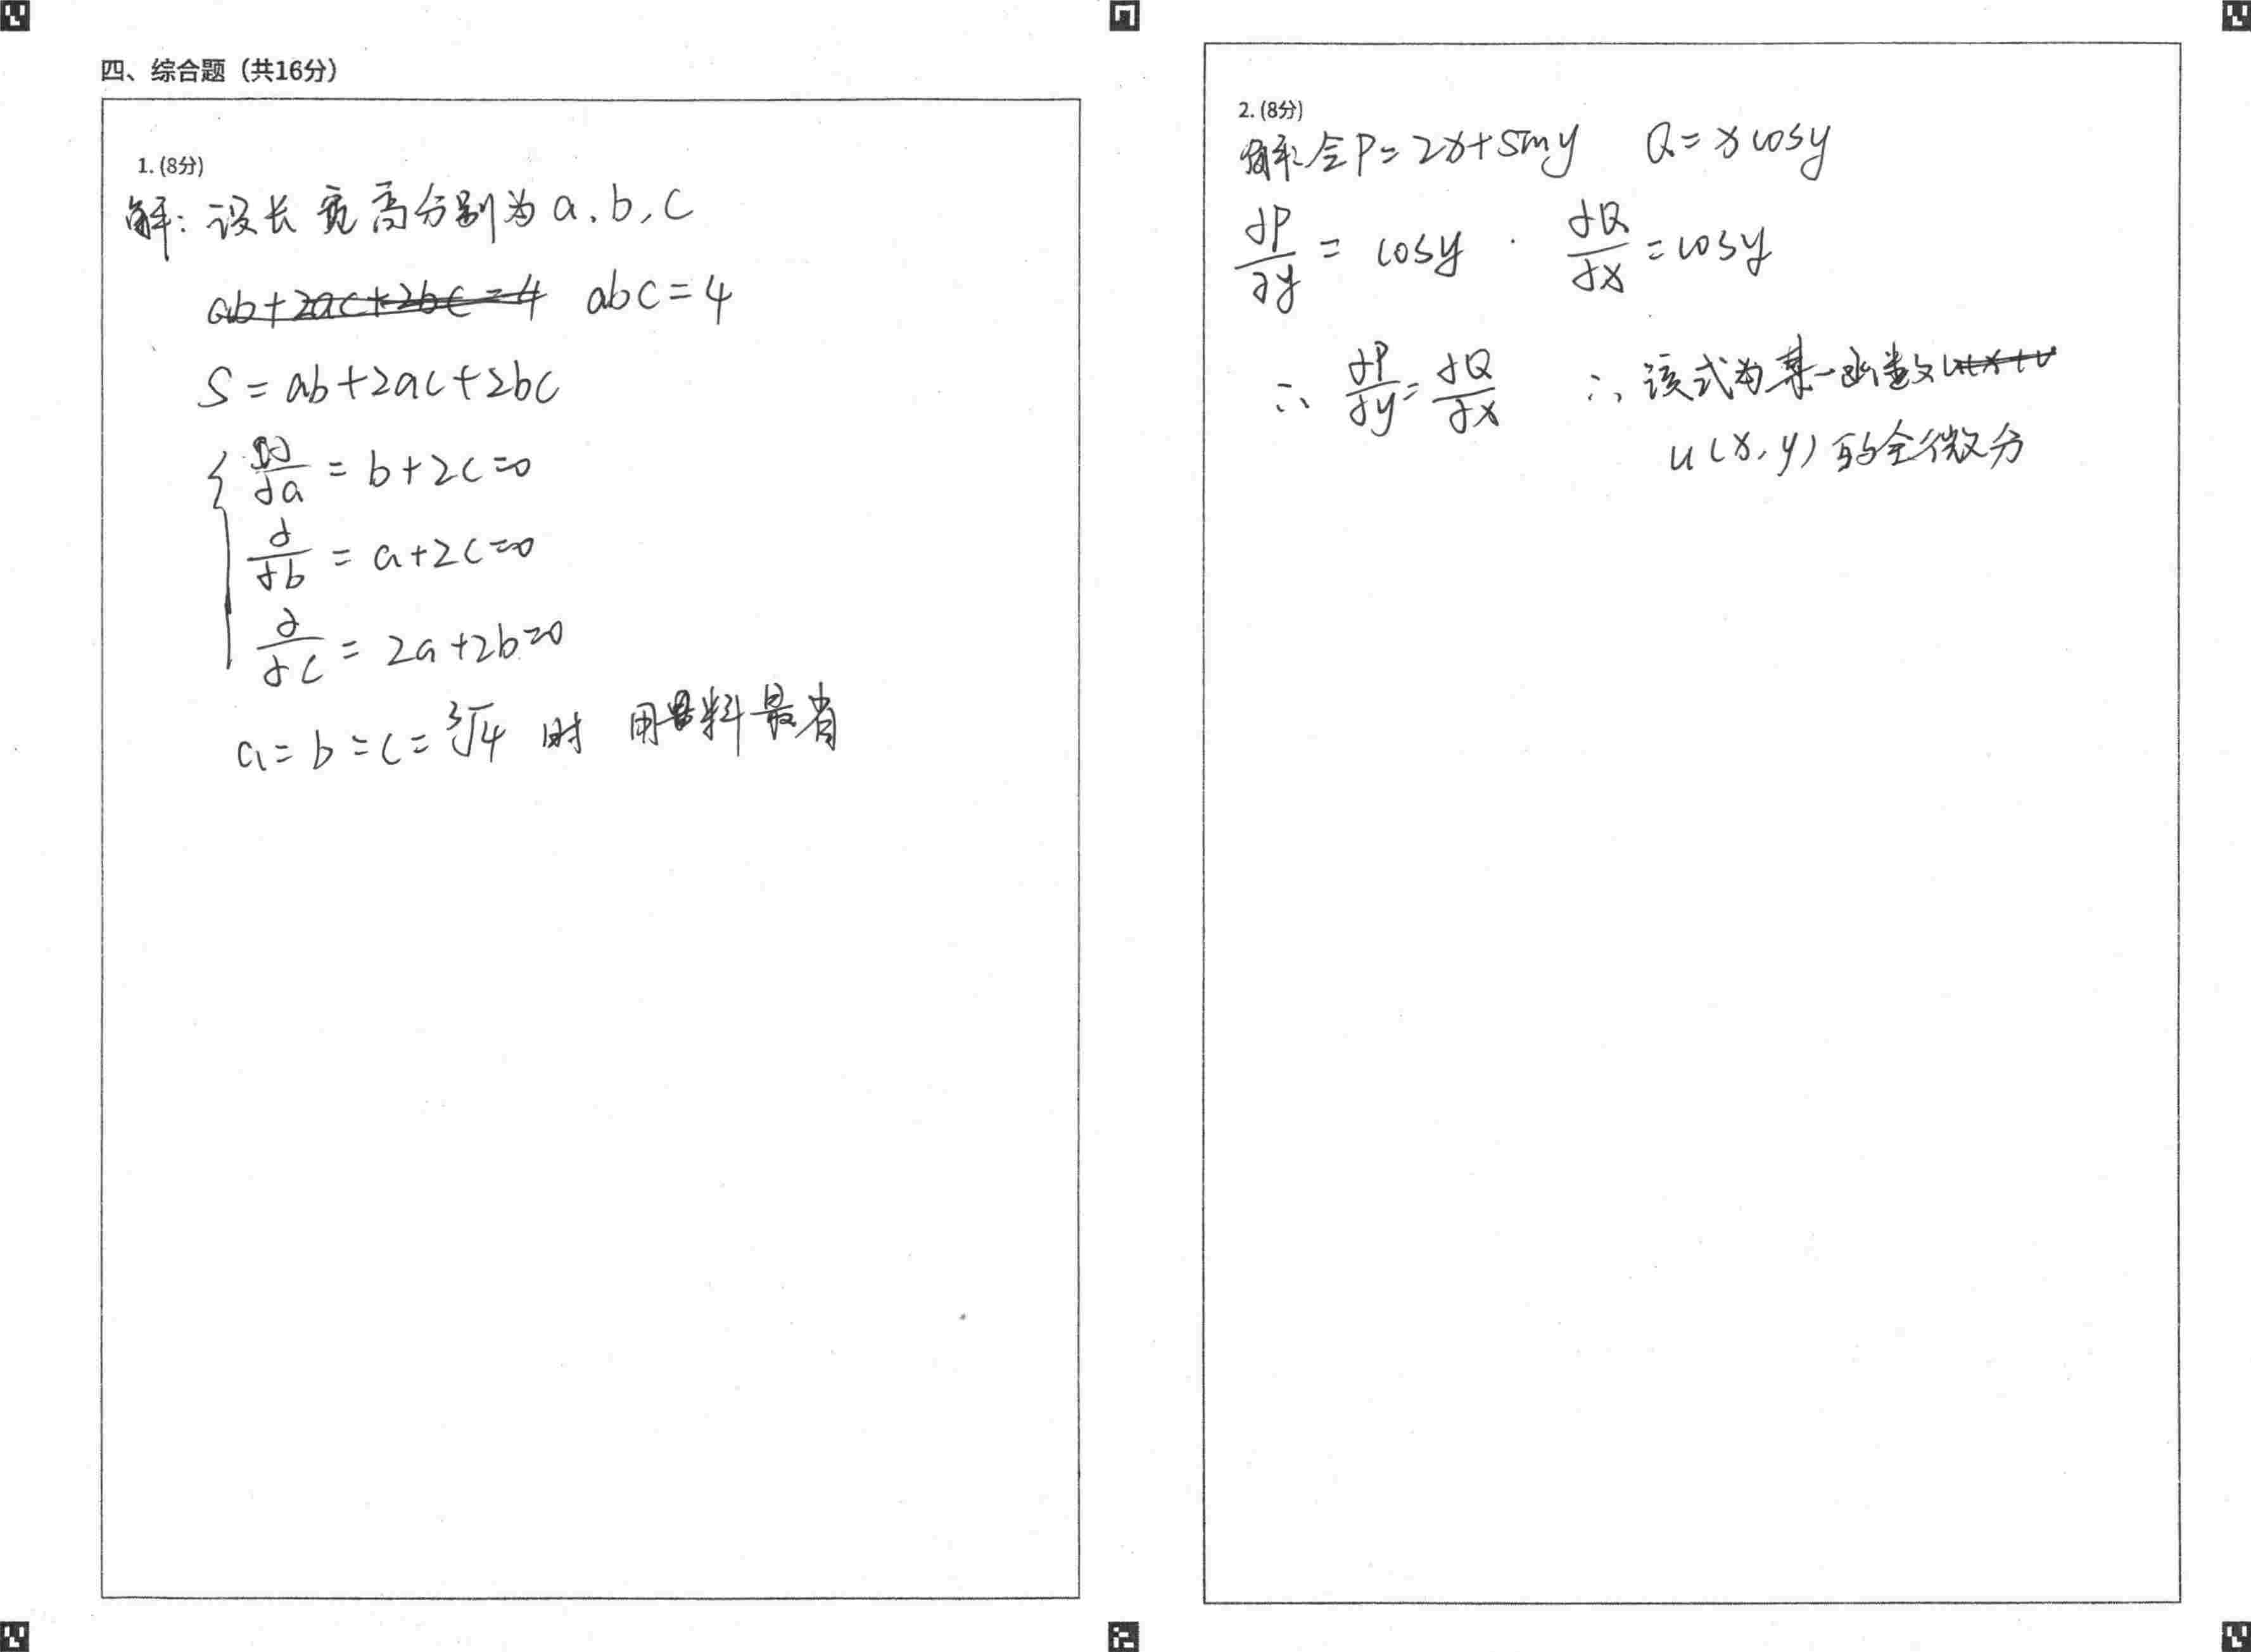 四、综合题（共16分）
1. (8分)
解：设长宽高分别为a、b、c
ab+2ac+2bc=4 abc=4
S=ab+2ac+2bc
∂/∂a = b+2c=0
∂/∂b = a+2c=0
∂/∂c = 2a+2b=0
a=b=c=∛4 时 用料最省
2. (8分)
解：令P=2x+siny Q=xcosy
∂P/∂y = cosy · ∂Q/∂x = cosy
∴ ∂P/∂y = ∂Q/∂x ∴ 该式为某一函数
u(x,y)的全微分